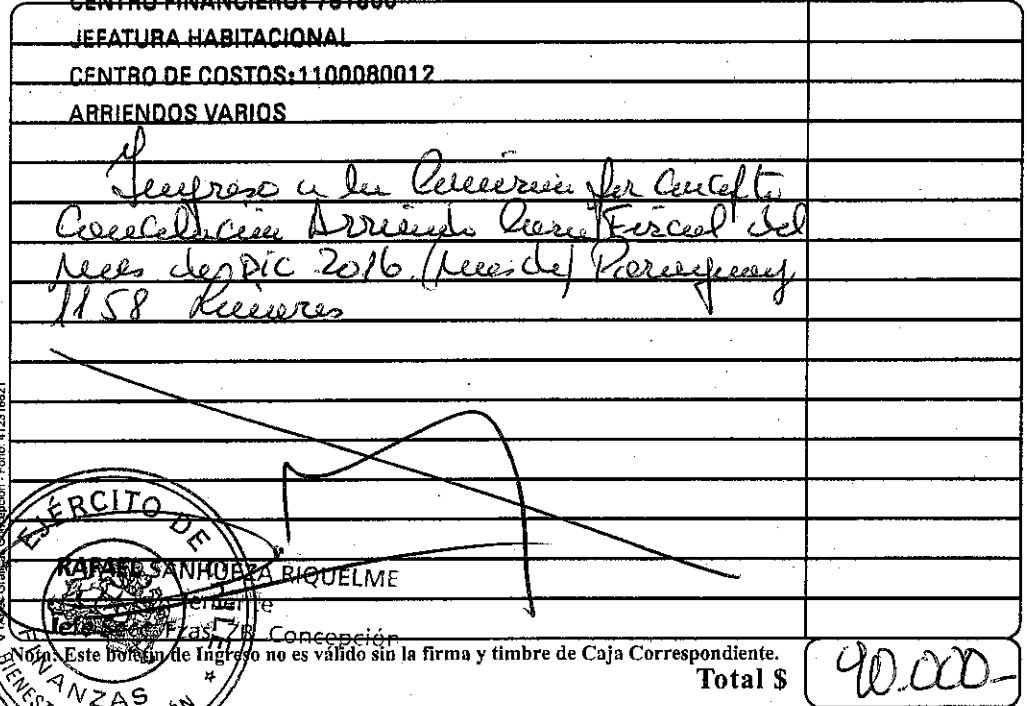 CENTRO FINANCIERO: 781800
JEFATURA HABITACIONAL
CENTRO DE COSTOS: 1100080012
ARRIENDOS VARIOS
Ingreso a la Comisión por Concepto
Cancelación Arriendo Casa Fiscal del
mes de DIC 2016. (mes de) Paraguay
1158 Linares
EJÉRCITO DE CHILE
RAFAEL SANHUEZA RIQUELME
Teniente
Jefe Secc. Fzas. ZB. Concepción
FINANZAS
Nota: Este boletín de Ingreso no es válido sin la firma y timbre de Caja Correspondiente.
Total $ 90.000-